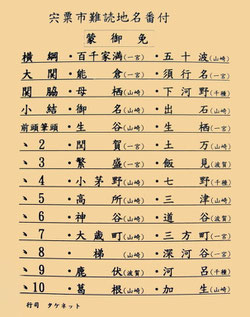 宍粟市難読地名番付
蒙御免
横綱・百千家満(一宮)・五十波(山崎)
大関・能倉(一宮)・須行名(一宮)
関脇・母栖(山崎)・下河野(千種)
小結・御名(山崎)・出石(山崎)
前頭筆頭・生谷(山崎)・生栖(一宮)
〃2・閏賀(一宮)・土万(山崎)
〃3・繁盛(一宮)・飯見(波賀)
〃4・小茅野(山崎)・七野(千種)
〃5・高所(山崎)・三津(山崎)
〃6・神谷(山崎)・道谷(波賀)
〃7・大歳町(山崎)・三方町(一宮)
〃8・梯(山崎)・深河谷(一宮)
〃9・鹿伏(波賀)・河呂(千種)
〃10・葛根(山崎)・加生(山崎)
行司 タケネット